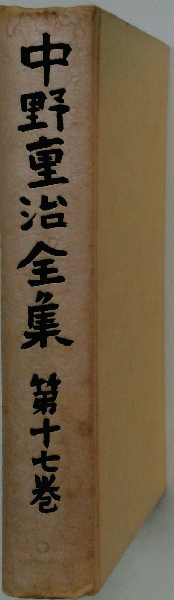 中野重治全集 第十七巻